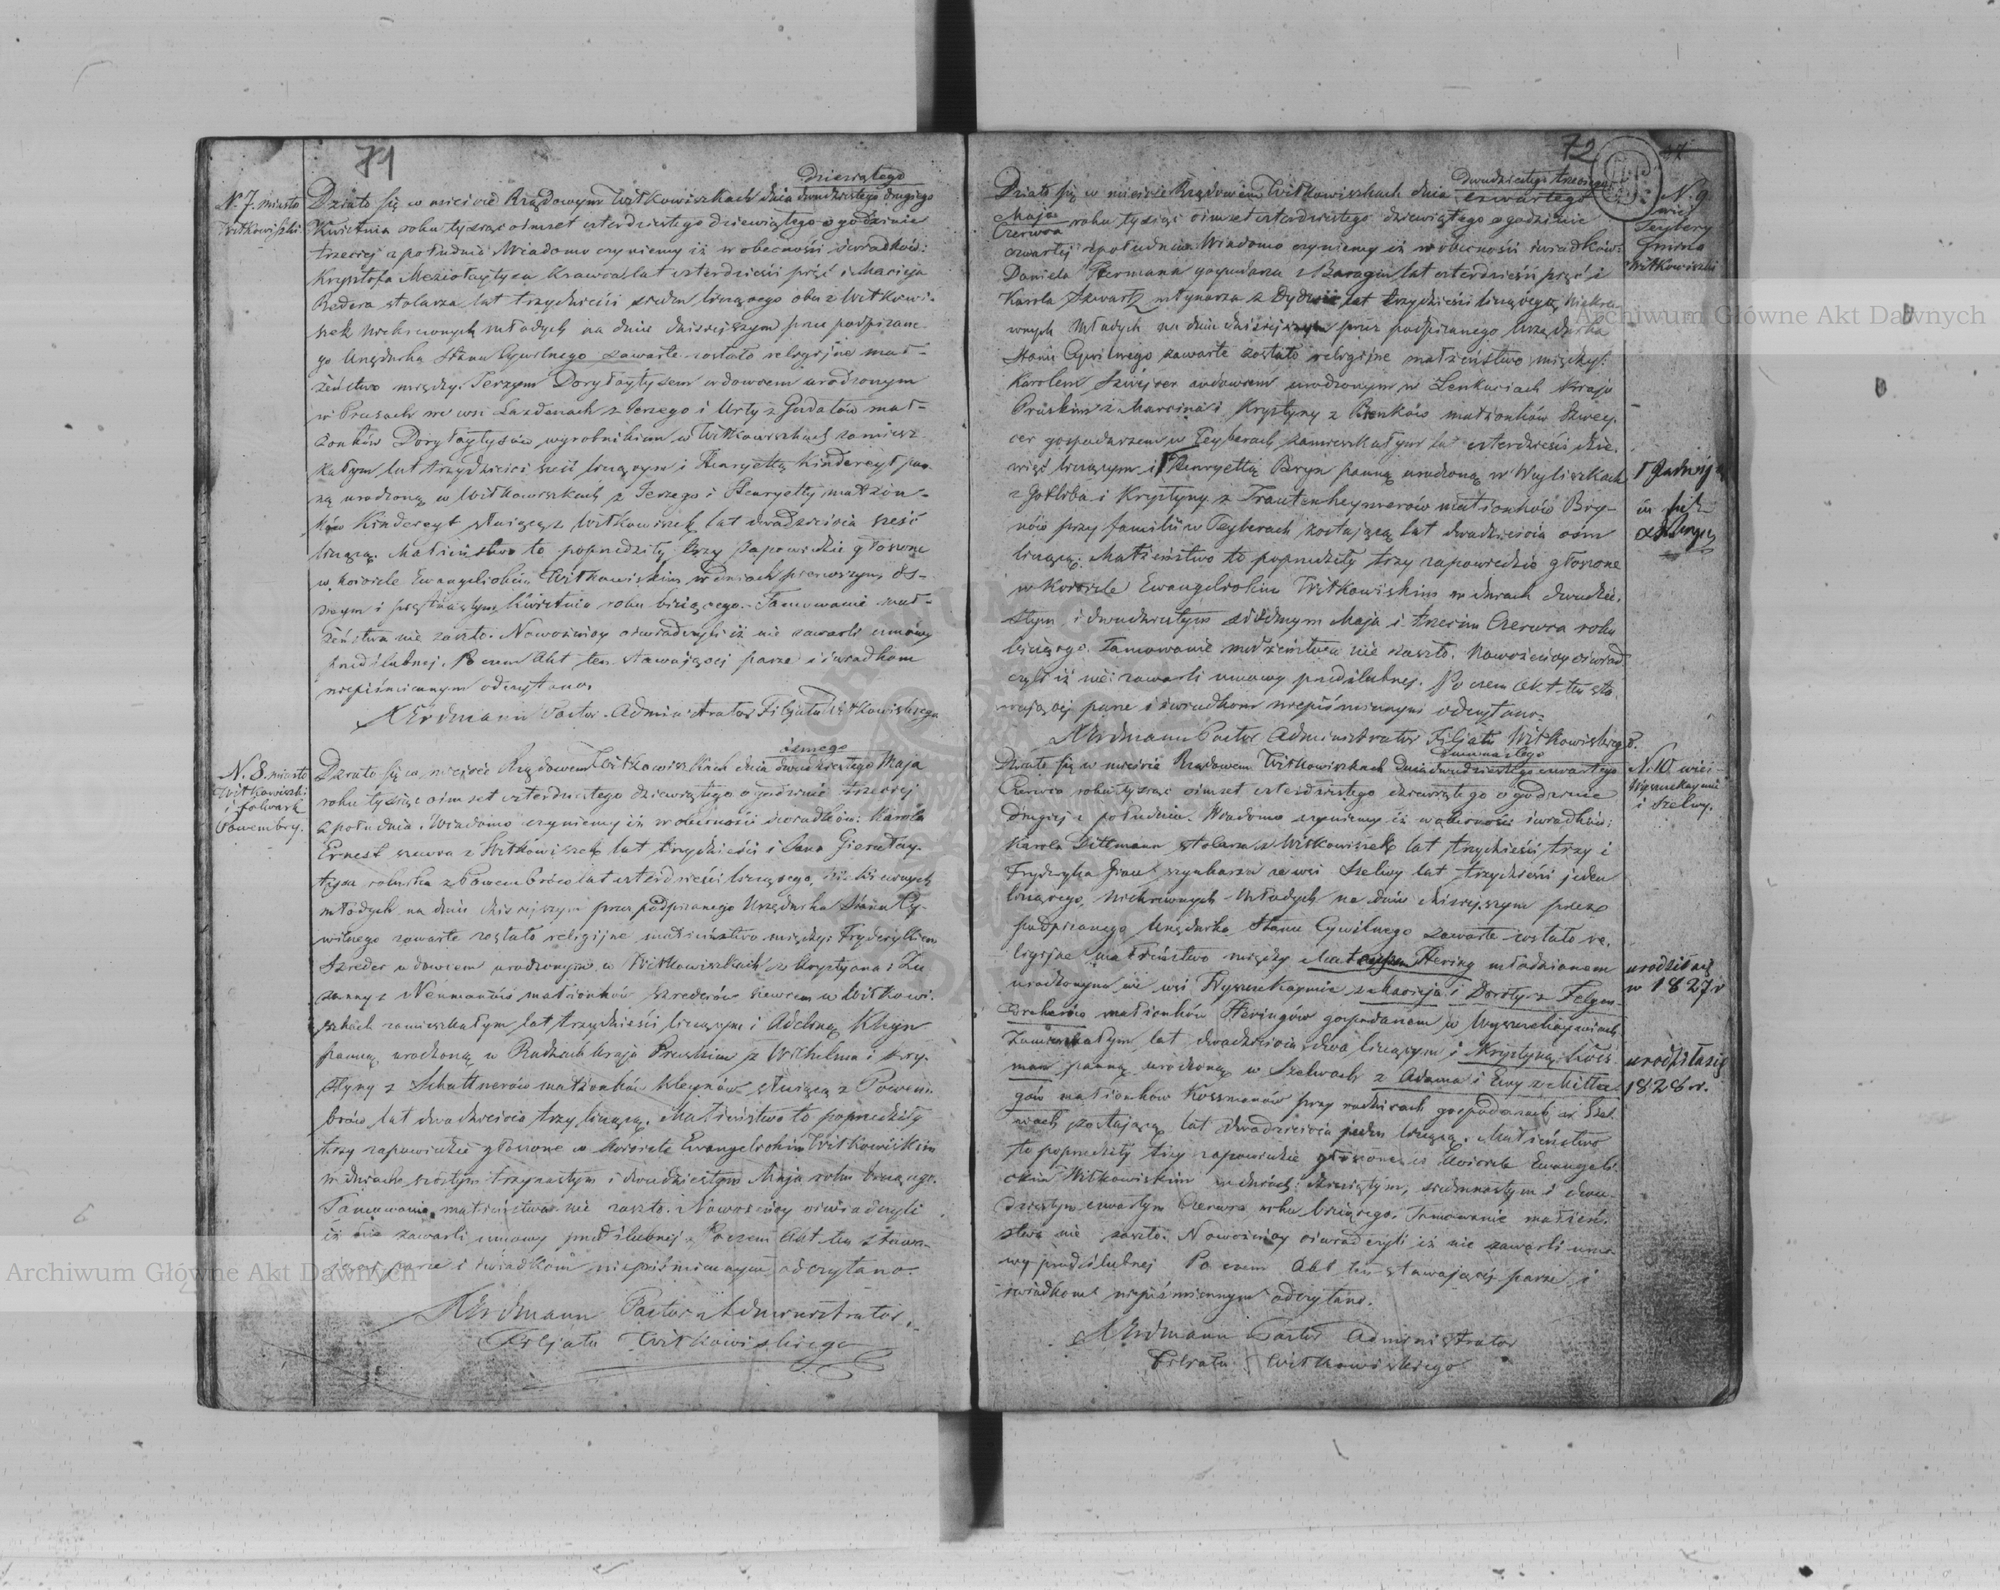 71
N. 7. miasto
Witkowiszki
dziesiątego
Działo się w mieście Rządowym Witkowiszkach dnia dwudziestego drugiego
Kwietnia roku tysiąc ośmset czterdziestego dziewiątego o godzinie
trzeciej z południa Wiadomo czyniemy iż w obecności świadków:
Krysztofa krawca lat czterdzieści pięć i Macieja
stolarza lat trzydzieści siedm liczącego obu z Witkowi-
szek Niekrewnych Młodych na dniu dzisiejszym przez podpisane-
go Urzędnika Stanu Cywilnego zawarte zostało religijne mał-
żeństwo między: Jerzym wdowcem urodzonym
w Prusach we wsi Lazdenach z Jerzego i Urty z Gudatów mał-
żonków wyrobnikiem w Witkowiszkach zamiesz-
kałym lat trzydzieści sześć liczącym i Henryettą Kindereyt pan-
ną urodzoną w Witkowiszkach z Jerzego i Henryetty małżon-
ków Kindereyt służącą z Witkowiszek lat dwadzieścia sześć
liczącą. Małżeństwo to poprzedziły trzy zapowiedzie głoszone
w kościele Ewangelickim Witkowiskim w dniach pierwszym ós-
mym i piętnastym Kwietnia roku bieżącego. Tamowanie mał-
żeństwa nie zaszło. Nowożeńcy oświadczyli iż nie zawarli umowy
przedślubnej. Po czem Akt ten stawającej parze i świadkom
niepiśmiennym odczytano.
A Erdmann Pastor Administrator Filjału Witkowiskiego
N. 8. miasto
Witkowiszki
i folwark
Powembry.
ósmego
Działo się w mieście Rządowem Witkowiszkach dnia dwudziestego Maja
roku tysiąc ośmset czterdziestego dziewiątego o godzinie trzeciej
z południa. Wiadomo czyniemy iż w obecności świadków: Karola
Ernest szewca z Witkowiszek lat trzydzieści i Jana
rolnika z Powembrów lat czterdzieści liczącego, Niekrewnych
młodych na dniu dzisiejszym przez podpisanego Urzędnika Stanu Cy-
wilnego zawarte zostało religijne małżeństwo między: Fryderykiem
Szreder wdowcem urodzonym w Witkowiszkach z Krystyana i Zu-
zanny z Neumanów małżonków Szrederów szewcem w Witkowi-
szkach zamieszkałym lat trzydzieści liczącym i Adeliną Kleyn
panną urodzoną w kraju Pruskim z Wilhelma i Kry-
styny z Schattnerów małżonków Kleynów służącą z Powem-
brów lat dwadzieścia trzy liczącą. Małżeństwo to poprzedziły
trzy zapowiedzie głoszone w Kościele Ewangelickim Witkowiskim
w dniach szóstym trzynastym i dwudziestym Maja roku bieżącego.
Tamowanie małżeństwa nie zaszło. Nowożeńcy oświadczyli
iż nie zawarli umowy przedślubnej. Poczem Akt ten stawa-
jącej parze i świadkom niepiśmiennym odczytano.
A Erdmann Pastor Administrator
Filjału Witkowiskiego
72
N. 9
wieś
Teybery
gmina
Witkowiszki
dwudziestego trzeciego
Działo się w mieście Rządowem Witkowiszkach dnia czwartego
Maja
Czerwca roku tysiąc ośmset czterdziestego dziewiątego o godzinie
czwartej z południa Wiadomo czyniemy iż w obecności świadków:
Daniela Hermana gospodarza z lat czterdzieści pięć i
Karola Szwartz młynarza z lat trzydzieści liczącego, Niekre-
wnych Młodych na dniu dzisiejszym przez podpisanego Urzędnika
Stanu Cywilnego zawarte zostało religijne małżeństwo między:
Karolem Szweycer wdowcem urodzonym w Lenkuciach kraju
Pruskim z Marcina i Krystyny z małżonków Szwey-
cer gospodarzem w Teyberach zamieszkałym lat czterdzieści dzie-
więć liczącym i Henryettą Bryn panną urodzoną w Wyliszkach
z Gotliba i Krystyny z Trautenheymerów małżonków Bry-
nów przy familii w Teyberach zostającą lat dwadzieścia ośm
liczącą. Małżeństwo to poprzedziły trzy zapowiedzie głoszone
w Kościele Ewangelickim Witkowiskim w dniach dwudzie-
stym i dwudziestym siódmym Maja i trzecim Czerwca roku
bieżącego. Tamowanie małżeństwa nie zaszło. Nowożeńcy oświad-
czyli iż nie zawarli umowy przedślubnej. Po czem Akt ten sta-
wającej parze i świadkom niepiśmiennym odczytano.
A Erdmann Pastor Administrator Filjału Witkowiskiego
N. 10 wieś
i Szelwy.
Działo się w mieście Rządowem Witkowiszkach dnia dwudziestego czwartego
Czerwca roku tysiąc ośmset czterdziestego dziewiątego o godzinie
drugiej z południa. Wiadomo czyniemy iż w obecności świadków:
Karola Dittmann stolarza z Witkowiszek lat trzydzieści trzy i
Fryderyka Grau szynkarza ze wsi Szelwy lat trzydzieści jeden
liczącego, Niekrewnych Młodych na dniu dzisiejszym przez
podpisanego Urzędnika Stanu Cywilnego zawarte zostało re-
ligijne małżeństwo między Mateuszem Hering młodzianem
urodzonym we wsi z Macieja i Doroty z
małżonków Heringów gospodarzem w
zamieszkałym lat dwadzieścia dwa liczącym i Krystyną Koss-
man panną urodzoną w Szelwach z Adama i Ewy z
małżonków Kossmanów przy rodzicach gospodarzach w Szel-
wach zostającą lat dwadzieścia jeden liczącą. Małżeństwo
to poprzedziły trzy zapowiedzie głoszone w Kościele Ewangeli-
ckim Witkowiskim w dniach dziesiątym, siedmnastym i dwu-
dziestym czwartym Czerwca roku bieżącego. Tamowanie małżeń-
stwa nie zaszło. Nowożeńcy oświadczyli iż nie zawarli umo-
wy przedślubnej Po czem Akt ten stawającej parze i
świadkom niepiśmiennym odczytano.
A Erdmann Pastor Administrator
Filjału Witkowiskiego
urodził się
w 1827 r
urodziła się
1828 r.
Archiwum Główne Akt Dawnych
Archiwum Główne Akt Dawnych